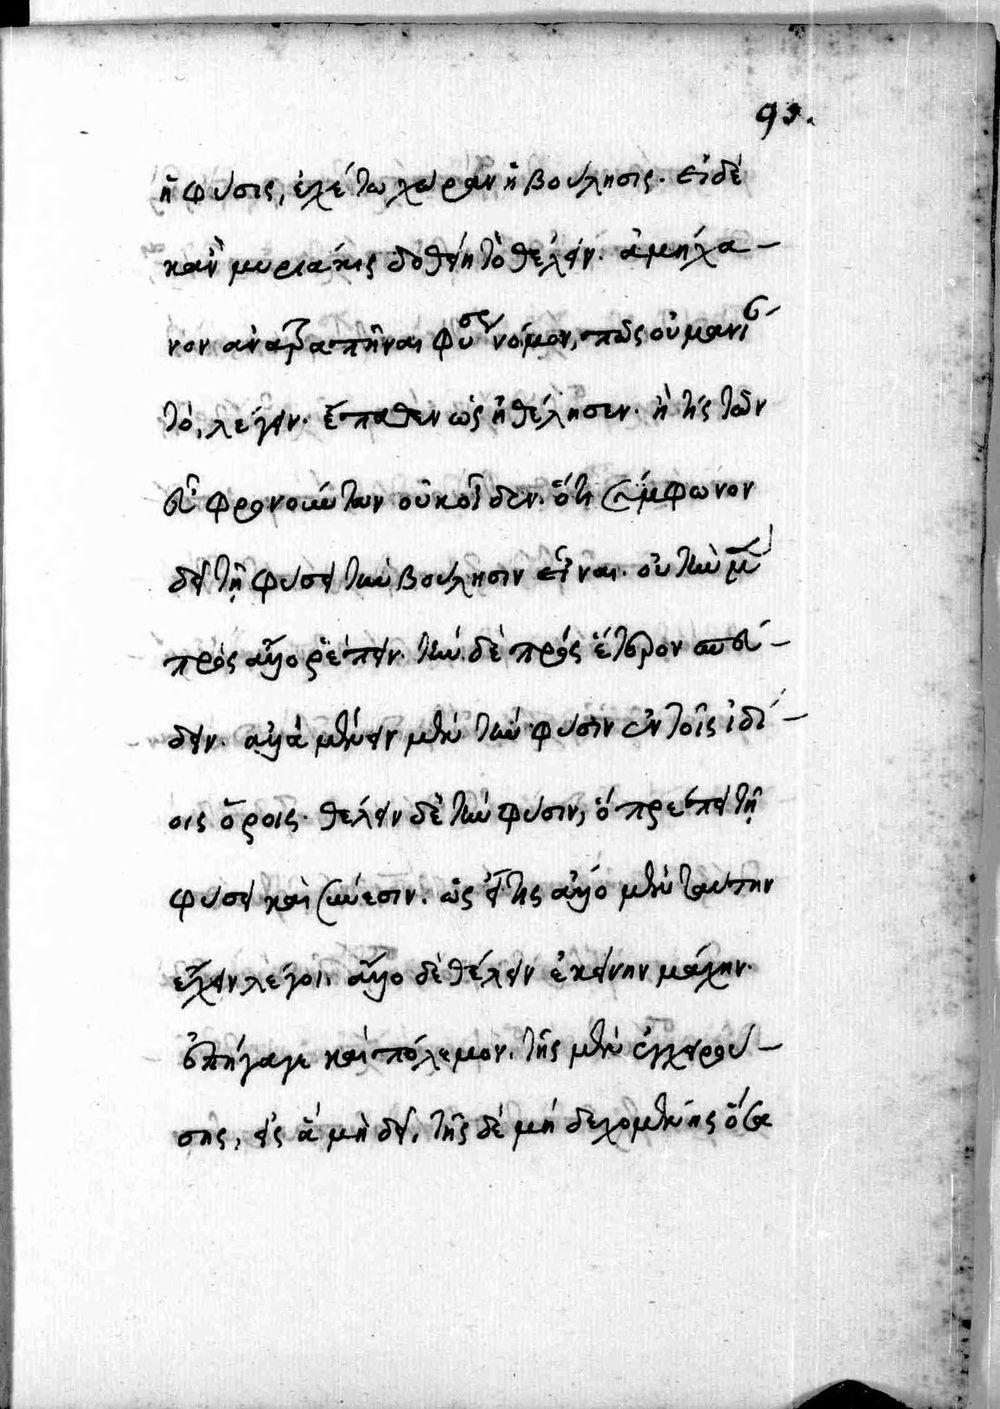 93.
ἡ φύσις, ἐχέτω χώραν ἡ βούλησις. εἰ δὲ
κἂν μυριάκις δοθείη τὸ θέλειν. ἀμήχα-
νον ἀνατραπῆναι φύσεως νόμον, πῶς οὐ μανι
τὸ, λέγειν. ἔπαθεν ὡς ἠθέλησεν. ἢ τίς τῶν
εὖ φρονούντων οὐκ οἶδεν. ὅτι σύμφωνον
δεῖ τῇ φύσει τὴν βούλησιν εἶναι. οὐ τὴν μὲν
πρὸς ἄλλο ῥέπειν. τὴν δὲ πρὸς ἕτερον σπεύ-
δειν. ἀλλὰ μένειν μὲν τὴν φύσιν ἐν τοῖς ἰδί-
οις ὅροις. θέλειν δὲ τὴν φύσιν, ὃ πρέπει τῇ
φύσει καὶ συνέσιν. ὡς εἴ τις ἄλλο μὲν ταύτην
ἔχειν λέγοι. ἄλλο δὲ θέλειν ἐκείνην μάχην.
ἐπήγαγε καὶ πόλεμον. τῆς μὲν ἐγχειρού-
σης, εἰς ἃ μὴ δεῖ. τῆς δὲ μὴ δεχομένης ὅσα